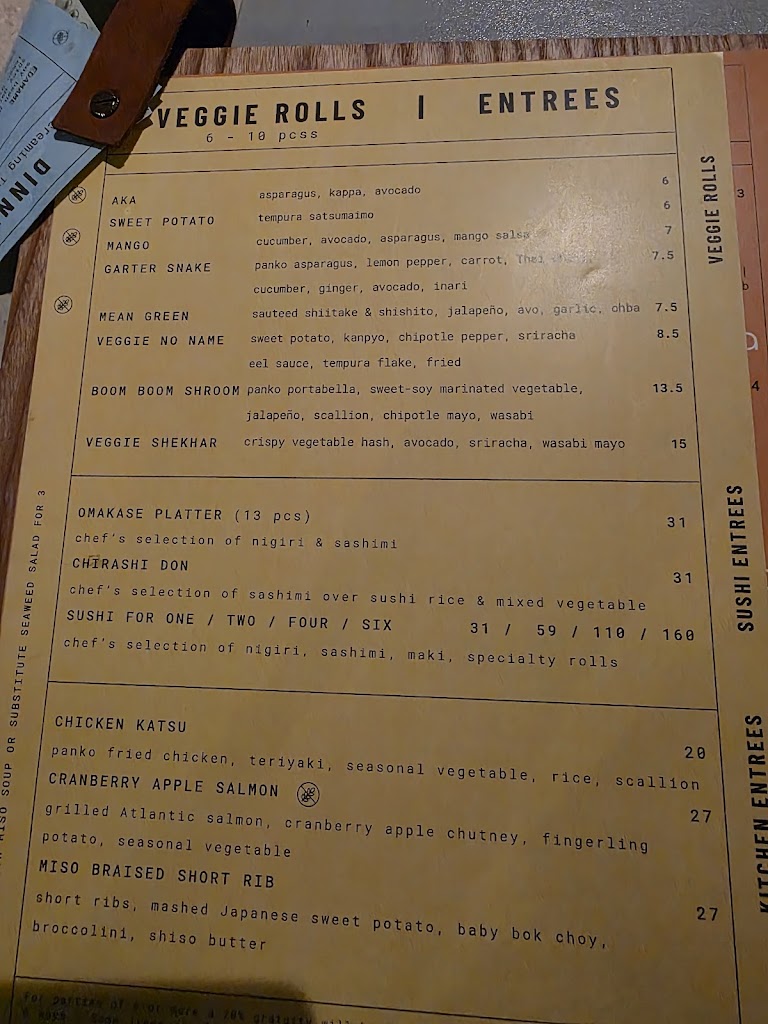 VEGGIE ROLLS | ENTREES
6 - 10 pcss
AKA asparagus, kappa, avocado 6
SWEET POTATO tempura satsumaimo 6
MANGO cucumber, avocado, asparagus, mango salsa 7
GARTER SNAKE panko asparagus, lemon pepper, carrot, Thai 7.5
cucumber, ginger, avocado, inari
MEAN GREEN sauteed shiitake & shishito, jalapeño, avo, garlic, ohba 7.5
VEGGIE NO NAME sweet potato, kanpyo, chipotle pepper, sriracha 8.5
eel sauce, tempura flake, fried
BOOM BOOM SHROOM panko portabella, sweet-soy marinated vegetable, 13.5
jalapeño, scallion, chipotle mayo, wasabi
VEGGIE SHEKHAR crispy vegetable hash, avocado, sriracha, wasabi mayo 15
OMAKASE PLATTER (13 pcs) 31
chef's selection of nigiri & sashimi
CHIRASHI DON 31
chef's selection of sashimi over sushi rice & mixed vegetable
SUSHI FOR ONE / TWO / FOUR / SIX 31 / 59 / 110 / 160
chef's selection of nigiri, sashimi, maki, specialty rolls
CHICKEN KATSU 20
panko fried chicken, teriyaki, seasonal vegetable, rice, scallion
CRANBERRY APPLE SALMON 27
grilled Atlantic salmon, cranberry apple chutney, fingerling
potato, seasonal vegetable
MISO BRAISED SHORT RIB 27
short ribs, mashed Japanese sweet potato, baby bok choy,
broccolini, shiso butter
VEGGIE ROLLS
SUSHI ENTREES
KITCHEN ENTREES
MISO SOUP OR SUBSTITUTE SEAWEED SALAD FOR 3
DINN
EDAMAME
3
4